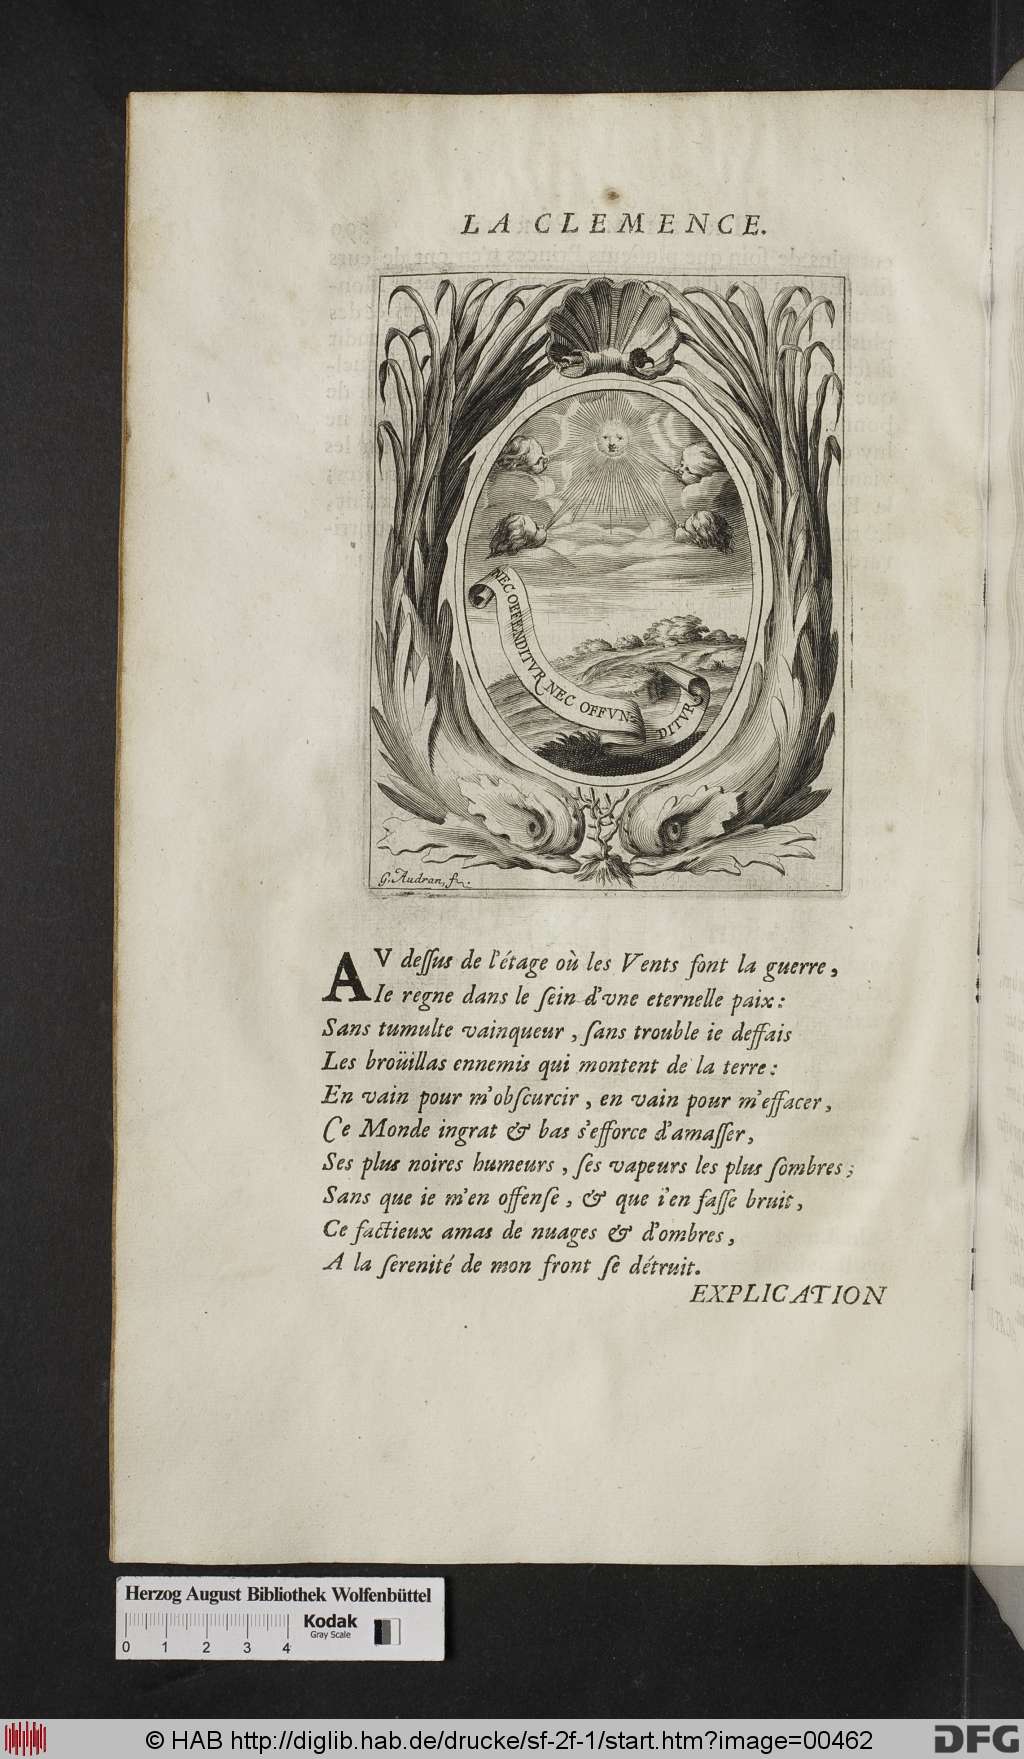 LA CLEMENCE.
NEC OFFENDITVR NEC OFFVN=
DITVR
G. Audran, f.
AV dessus de l'étage où les Vents font la guerre,
Ie regne dans le sein d'vne eternelle paix:
Sans tumulte vainqueur, sans trouble ie deffais
Les broüillas ennemis qui montent de la terre:
En vain pour m'obscurcir, en vain pour m'effacer,
Ce Monde ingrat & bas s'efforce d'amasser,
Ses plus noires humeurs, ses vapeurs les plus sombres;
Sans que ie m'en offense, & que i'en fasse bruit,
Ce factieux amas de nuages & d'ombres,
A la serenité de mon front se détruit.
EXPLICATION
Herzog August Bibliothek Wolfenbüttel
0 1 2 3 4
Kodak
Gray Scale
© HAB http://diglib.hab.de/drucke/sf-2f-1/start.htm?image=00462
DFG